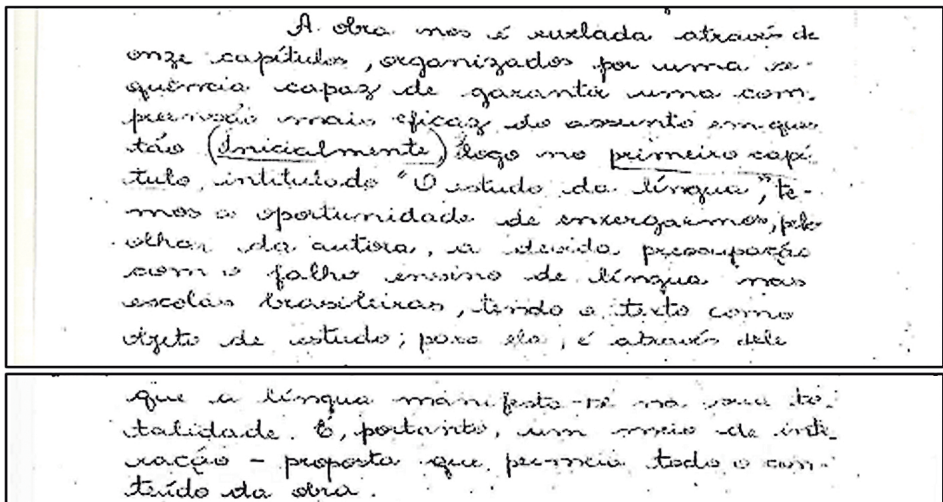 A obra nos é revelada através de
onze capítulos, organizados por uma se-
quência capaz de garantir uma com-
preensão mais eficaz do assunto em ques
tão (Inicialmente) logo no primeiro capí
tulo, intitulado "O estudo da língua", te-
mos a oportunidade de enxergarmos, pelo
olhar da autora, a devida preocupação
com o falho ensino de língua nas
escolas brasileiras, tendo o texto como
objeto de estudo; para ela, é através dele
que a língua manifesta-se na sua to-
talidade. É, portanto, um meio de inte-
ração - proposta que permeia todo o con-
teúdo da obra.